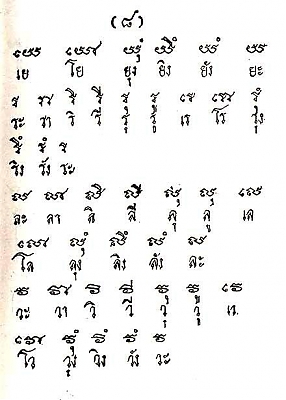 (๘)
យេ យោ យុំ យិំ យំ យ
เย โย ยุง ยิง ยัง ยะ
រ រា រិ រី រុ រូ រេ រោ រុំ
ระ รา ริ รี รุ รู เร โร รุง
រិំ រំ រ
ริง รัง ระ
ល លា លិ លី លុ លូ លេ
ละ ลา ลิ ลี ลุ ลู เล
លោ លុំ លិំ លំ ល
โล ลุง ลิง ลัง ละ
វ វា វិ វី វុ វូ វេ
วะ วา วิ วี วุ วู เว
វោ វុំ វិំ វំ វ
โว วุง วิง วัง วะ